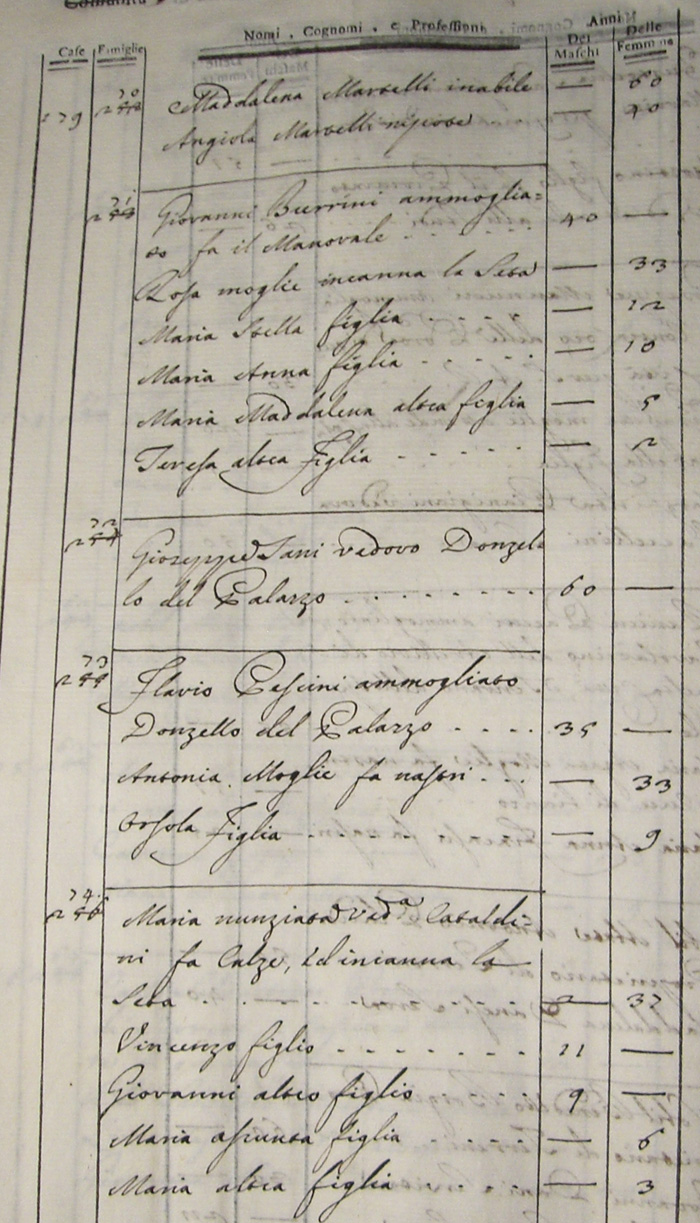 Nomi, Cognomi, e Professioni
Anni
Case Famiglie Dei Maschi Delle Femmine
179 70 Maddalena Martelli inabile — 60
Angiola Martelli nipote — 40
71 Giovanni Burrini ammoglia=
to fa il Manovale 40 —
Rosa moglie incanna la Seta — 33
Maria Stella figlia — 12
Maria Anna figlia — 10
Maria Maddalena altra figlia — 5
Teresa altra Figlia — 2
72 Gioseppe Tani vedovo Donzel=
lo del Palazzo 60 —
73 Flavio Pescini ammogliato
Donzello del Palazzo 35 —
Antonia Moglie fa nastri — 33
Orsola Figlia — 9
74 Maria nunziata ved.a Cataldi=
ni fa Calze, ed incanna la
Seta — 37
Vincenzo figlio 11 —
Giovanni altro figlio 9 —
Maria assunta figlia — 6
Maria altra figlia — 3